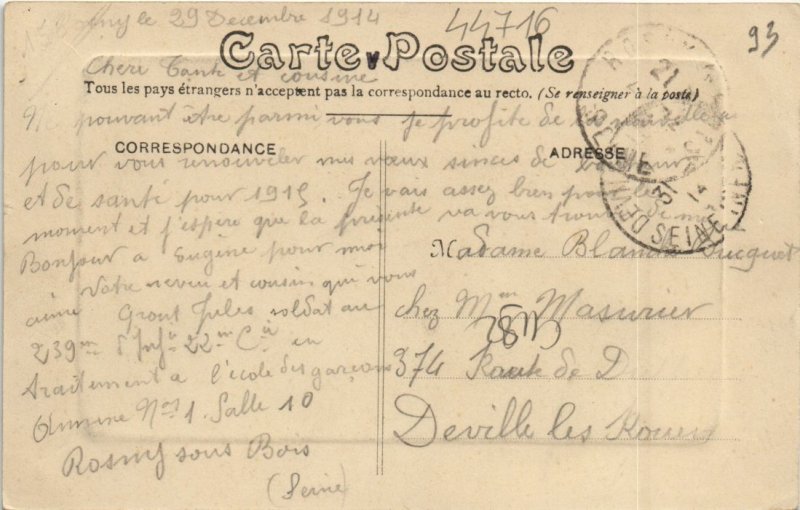 Rosny le 29 Décembre 1914
44716
93
Carte Postale
Chere Tante et cousine
Tous les pays étrangers n'acceptent pas la correspondance au recto. (Se renseigner à la poste)
Ne pouvant être parmi vous je profite de la nouvelle a
CORRESPONDANCE
ADRESSE
pour vous renouveler mes vœux sinces de
et de santé pour 1915. Je vais assez bien pour le
moment et j'espere que la présente va vous trouver de meme
Bonjour a Eugène pour moi
Votre neveu et cousin qui vous
aime Grout Jules soldat au
239me d'Infie 22me Cie en
traitement a l'école des garçons
Annexe No 1 Salle 10
Rosny sous Bois
(Seine)
Madame Blanche
chez Mme Masurier
374 Route de
Deville les Rouen